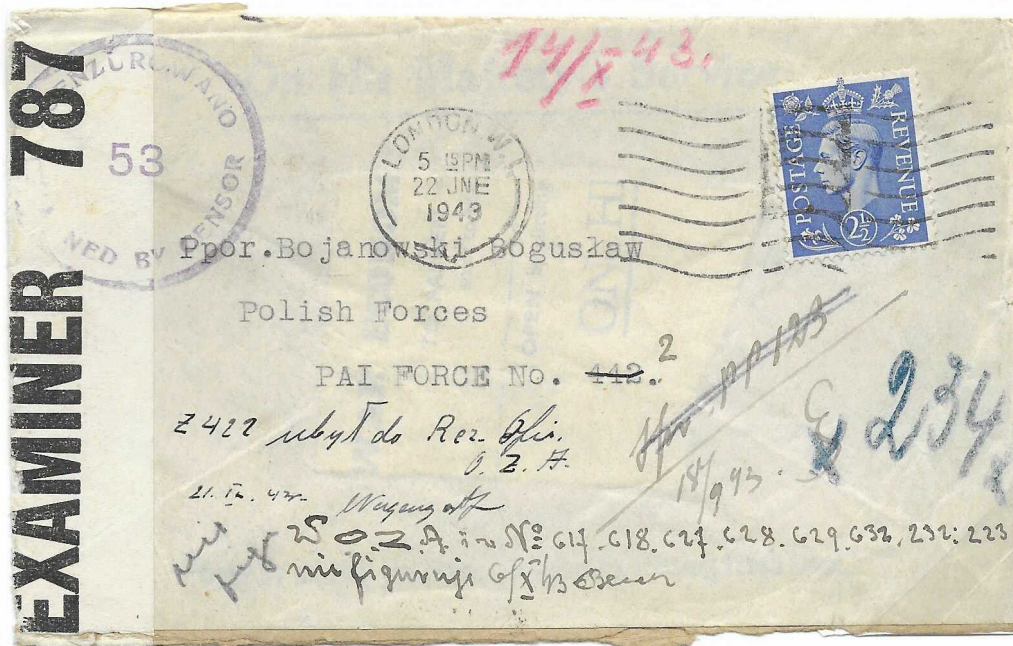 EXAMINER 787
NZUROWANO
53
NED BY CENSOR
14/X-43.
LONDON W1
5 15PM
22 JNE
1943
POSTAGE REVENUE
2½
Ppor.Bojanowski Bogusław
Polish Forces
PAI FORCE No. 442. 2
PP 123
234
Z 422 ubył do Rez. Ofic.
O. Z. A.
18/9 43
21. IX. 43r.
W O.Z.A i w № 617. 618. 627. 628. 629. 632. 232. 223
nie figuruje 6/X/43